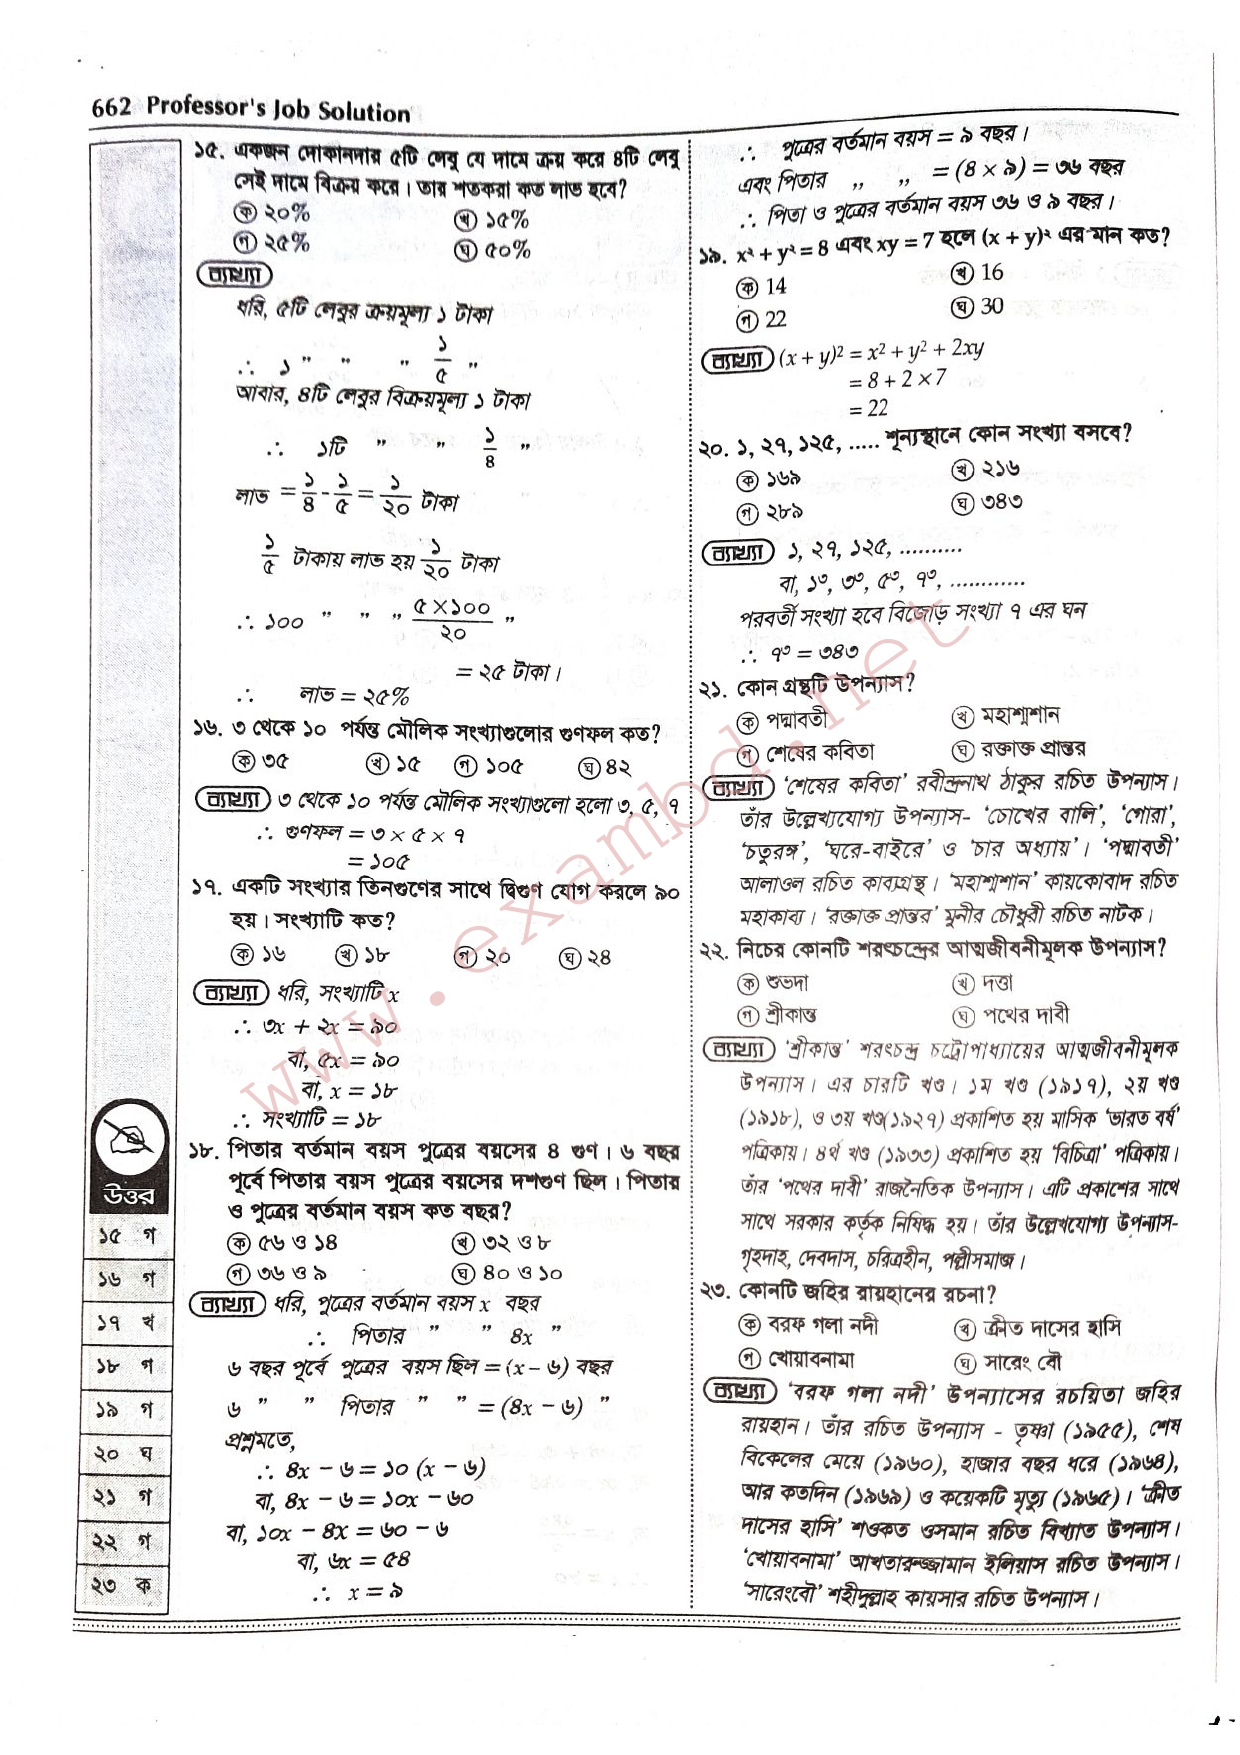 662 Professor's Job Solution
১৫. একজন দোকানদার ৫টি লেবু যে দামে ক্রয় করে ৪টি লেবু
সেই দামে বিক্রয় করে। তার শতকরা কত লাভ হবে?
ক ২০% খ ১৫%
গ ২৫% ঘ ৫০%
ব্যাখ্যা
ধরি, ৫টি লেবুর ক্রয়মূল্য ১ টাকা
∴ ১ " " " ১/৫ "
আবার, ৪টি লেবুর বিক্রয়মূল্য ১ টাকা
∴ ১টি " " ১/৪ "
লাভ = ১/৪ - ১/৫ = ১/২০ টাকা
১/৫ টাকায় লাভ হয় ১/২০ টাকা
∴ ১০০ " " " ৫×১০০/২০ "
= ২৫ টাকা।
∴ লাভ = ২৫%
১৬. ৩ থেকে ১০ পর্যন্ত মৌলিক সংখ্যাগুলোর গুণফল কত?
ক ৩৫ খ ১৫ গ ১০৫ ঘ ৪২
ব্যাখ্যা ৩ থেকে ১০ পর্যন্ত মৌলিক সংখ্যাগুলো হলো ৩, ৫, ৭
∴ গুণফল = ৩ × ৫ × ৭
= ১০৫
১৭. একটি সংখ্যার তিনগুণের সাথে দ্বিগুণ যোগ করলে ৯০
হয়। সংখ্যাটি কত?
ক ১৬ খ ১৮ গ ২০ ঘ ২৪
ব্যাখ্যা ধরি, সংখ্যাটি x
∴ ৩x + ২x = ৯০
বা, ৫x = ৯০
বা, x = ১৮
∴ সংখ্যাটি = ১৮
১৮. পিতার বর্তমান বয়স পুত্রের বয়সের ৪ গুণ। ৬ বছর
পূর্বে পিতার বয়স পুত্রের বয়সের দশগুণ ছিল। পিতার
ও পুত্রের বর্তমান বয়স কত বছর?
ক ৫৬ ও ১৪ খ ৩২ ও ৮
গ ৩৬ ও ৯ ঘ ৪০ ও ১০
ব্যাখ্যা ধরি, পুত্রের বর্তমান বয়স x বছর
∴ পিতার " " ৪x "
৬ বছর পূর্বে পুত্রের বয়স ছিল = (x – ৬) বছর
৬ " " পিতার " " = (৪x – ৬) "
প্রশ্নমতে,
∴ ৪x – ৬ = ১০ (x – ৬)
বা, ৪x – ৬ = ১০x – ৬০
বা, ১০x – ৪x = ৬০ – ৬
বা, ৬x = ৫৪
∴ x = ৯
∴ পুত্রের বর্তমান বয়স = ৯ বছর।
এবং পিতার ,, ,, = (৪ × ৯) = ৩৬ বছর
∴ পিতা ও পুত্রের বর্তমান বয়স ৩৬ ও ৯ বছর।
১৯. x² + y² = 8 এবং xy = 7 হলে (x + y)² এর মান কত?
ক 14 খ 16
গ 22 ঘ 30
ব্যাখ্যা (x + y)² = x² + y² + 2xy
= 8 + 2 × 7
= 22
২০. ১, ২৭, ১২৫, ..... শূন্যস্থানে কোন সংখ্যা বসবে?
ক ১৬৯ খ ২১৬
গ ২৮৯ ঘ ৩৪৩
ব্যাখ্যা ১, ২৭, ১২৫, ..........
বা, ১³, ৩³, ৫³, ৭³, ............
পরবর্তী সংখ্যা হবে বিজোড় সংখ্যা ৭ এর ঘন
∴ ৭³ = ৩৪৩
২১. কোন গ্রন্থটি উপন্যাস?
ক পদ্মাবতী খ মহাশ্মশান
গ শেষের কবিতা ঘ রক্তাক্ত প্রান্তর
ব্যাখ্যা 'শেষের কবিতা' রবীন্দ্রনাথ ঠাকুর রচিত উপন্যাস।
তাঁর উল্লেখযোগ্য উপন্যাস- 'চোখের বালি', 'গোরা',
'চতুরঙ্গ', 'ঘরে-বাইরে' ও 'চার অধ্যায়'। 'পদ্মাবতী'
আলাওল রচিত কাব্যগ্রন্থ। 'মহাশ্মশান' কায়কোবাদ রচিত
মহাকাব্য। 'রক্তাক্ত প্রান্তর' মুনীর চৌধুরী রচিত নাটক।
২২. নিচের কোনটি শরৎচন্দ্রের আত্মজীবনীমূলক উপন্যাস?
ক শুভদা খ দত্তা
গ শ্রীকান্ত ঘ পথের দাবী
ব্যাখ্যা 'শ্রীকান্ত' শরৎচন্দ্র চট্টোপাধ্যায়ের আত্মজীবনীমূলক
উপন্যাস। এর চারটি খণ্ড। ১ম খণ্ড (১৯১৭), ২য় খণ্ড
(১৯১৮), ও ৩য় খণ্ড(১৯২৭) প্রকাশিত হয় মাসিক 'ভারত বর্ষ'
পত্রিকায়। ৪র্থ খণ্ড (১৯৩৩) প্রকাশিত হয় 'বিচিত্রা' পত্রিকায়।
তাঁর 'পথের দাবী' রাজনৈতিক উপন্যাস। এটি প্রকাশের সাথে
সাথে সরকার কর্তৃক নিষিদ্ধ হয়। তাঁর উল্লেখযোগ্য উপন্যাস-
গৃহদাহ, দেবদাস, চরিত্রহীন, পল্লীসমাজ।
২৩. কোনটি জহির রায়হানের রচনা?
ক বরফ গলা নদী খ ক্রীত দাসের হাসি
গ খোয়াবনামা ঘ সারেং বৌ
ব্যাখ্যা 'বরফ গলা নদী' উপন্যাসের রচয়িতা জহির
রায়হান। তাঁর রচিত উপন্যাস - তৃষ্ণা (১৯৫৫), শেষ
বিকেলের মেয়ে (১৯৬০), হাজার বছর ধরে (১৯৬৪),
আর কতদিন (১৯৬৯) ও কয়েকটি মৃত্যু (১৯৬৫)। 'ক্রীত
দাসের হাসি' শওকত ওসমান রচিত বিখ্যাত উপন্যাস।
'খোয়াবনামা' আখতারুজ্জামান ইলিয়াস রচিত উপন্যাস।
'সারেংবৌ' শহীদুল্লাহ কায়সার রচিত উপন্যাস।
উত্তর
১৫ গ
১৬ গ
১৭ খ
১৮ গ
১৯ গ
২০ ঘ
২১ গ
২২ গ
২৩ ক
www.exambd.net